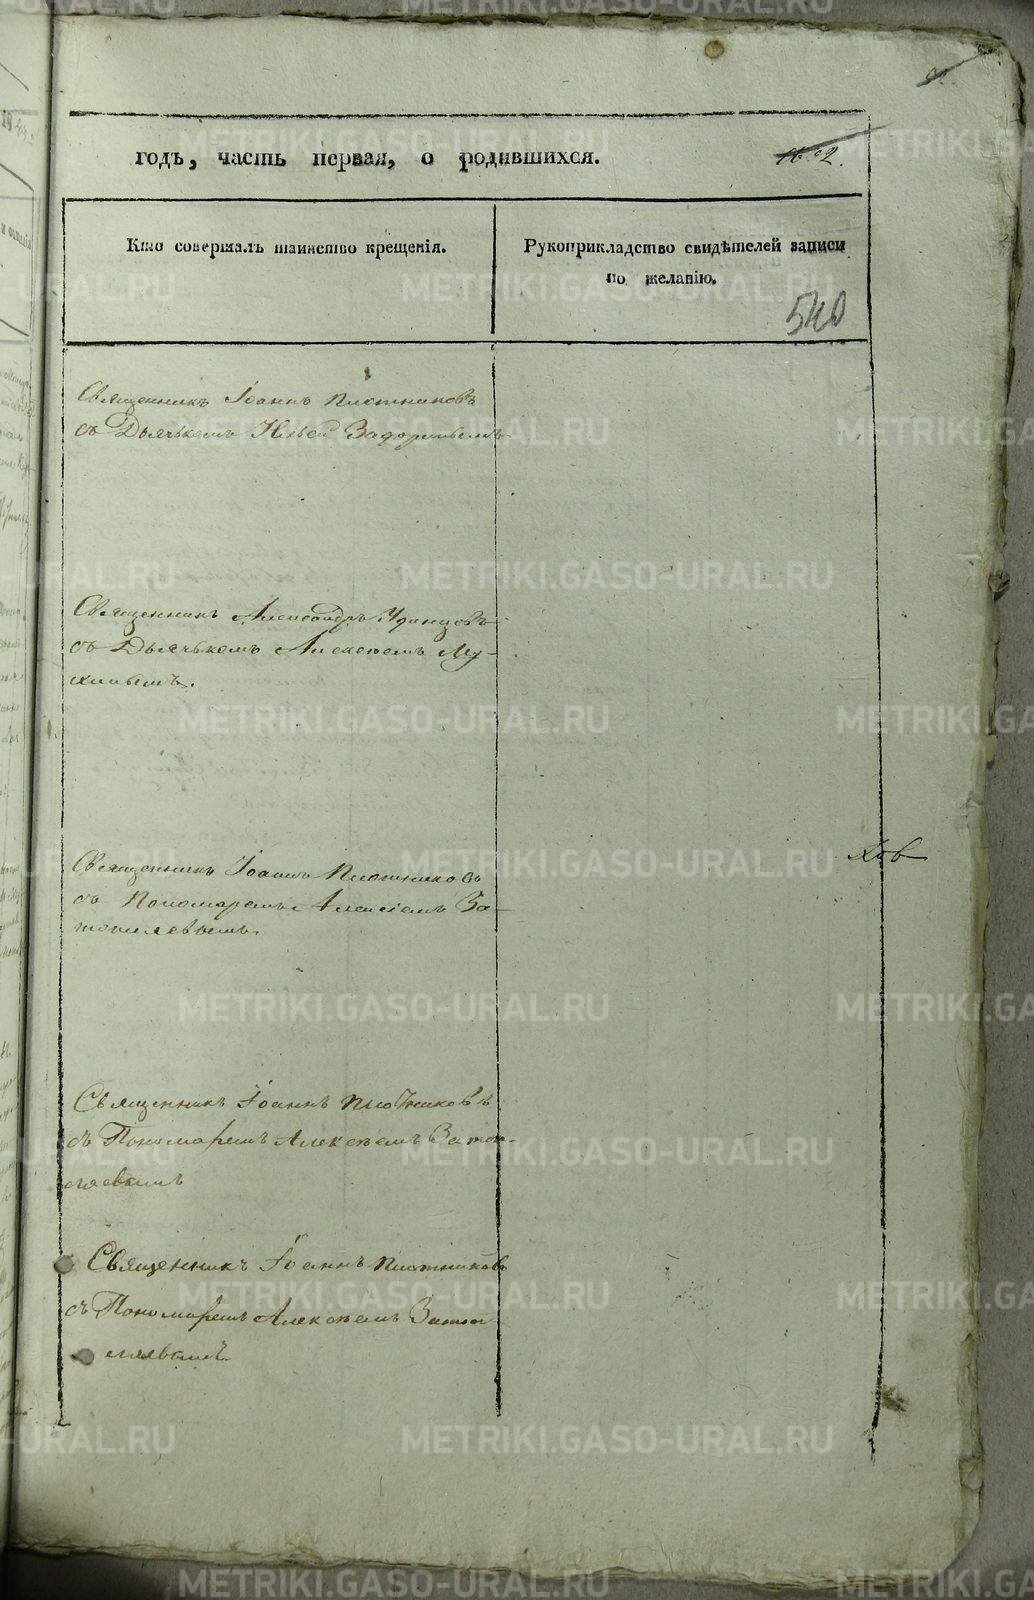 годъ, часть первая, о родившихся.
Кто совершалъ таинство крещенія.
Рукоприкладство свидѣтелей записи
по желанію.
540
Священникъ Іоаннъ Плотниковъ
съ Дьячькомъ Ильей
Священникъ Александръ Удинцовъ
съ Дьячькомъ Алексѣемъ Му-
хинымъ.
Священникъ Іоаннъ Плотниковъ
съ Пономаремъ Алексіемъ За-
топляевымъ.
Священникъ Іоаннъ Плотниковъ
съ Пономаремъ Алексѣемъ Затоп-
ляевымъ
Священникъ Іоаннъ Плотниковъ
съ Пономаремъ Алексѣемъ Затоп
ляевымъ.
METRIKI.GASO-URAL.RU